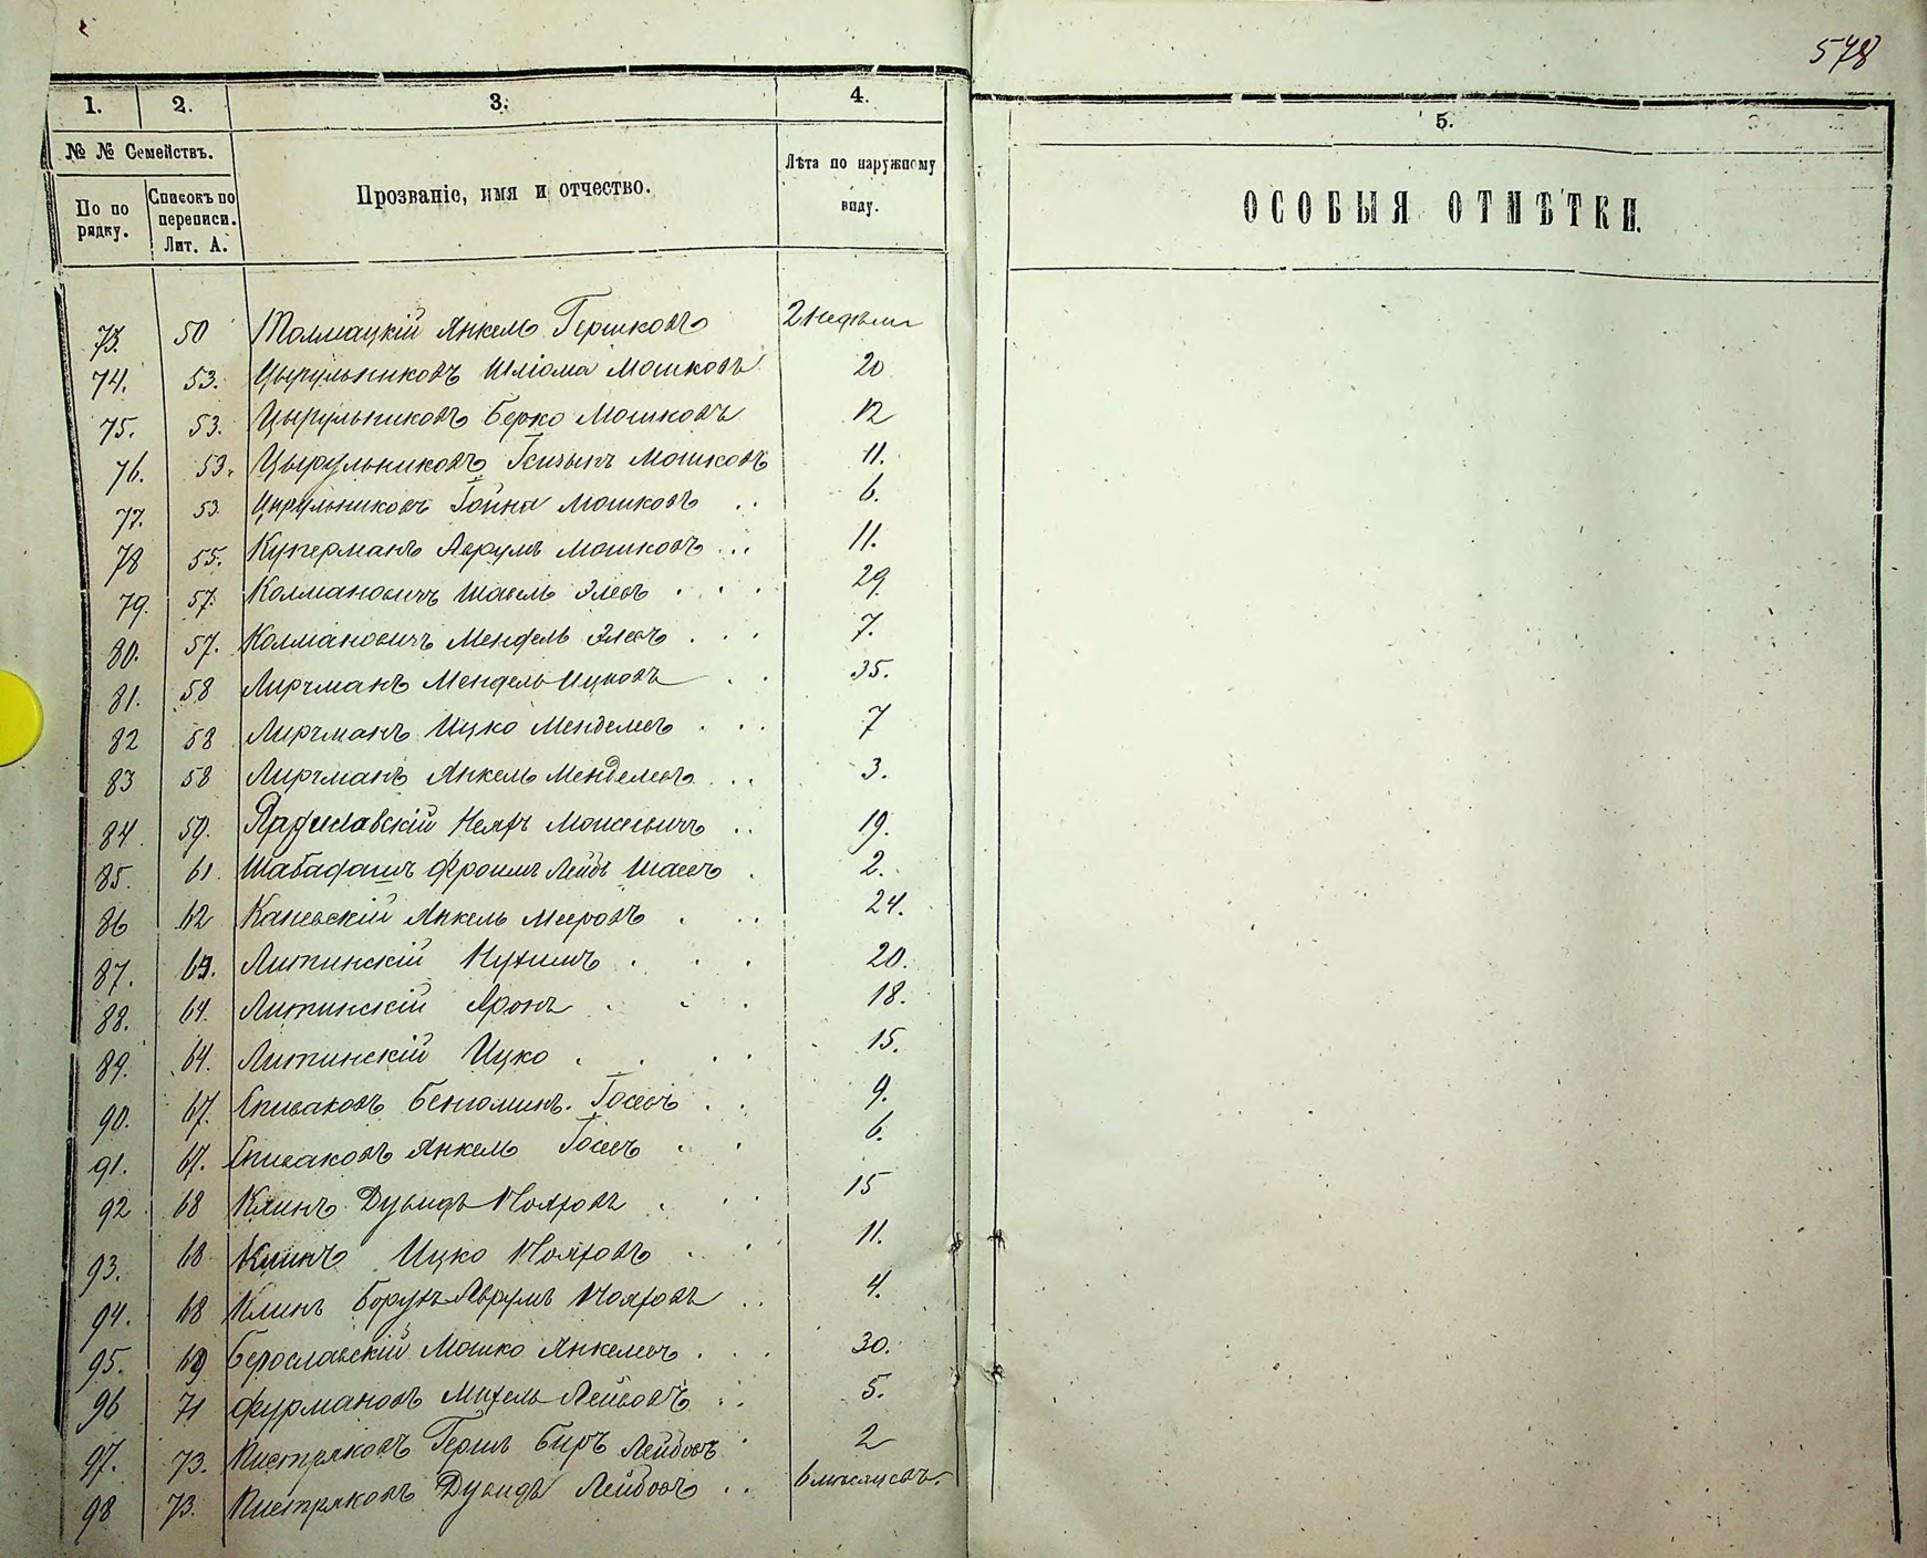 578
1. 2. 3. 4. 5.
№ № Семействъ.
По по рядку.
Списокъ по переписи. Лит. А.
Прозваніе, имя и отчество.
Лѣта по наружному виду.
ОСОБЫЯ ОТМѢТКИ.
73. 50 Толмацкій Янкель Гершковъ 2 недѣли
74. 53. Цырульниковъ Шліома Мошковъ 20
75. 53. Цырульниковъ Берко Мошковъ 12
76. 53. Цырульниковъ Мошковъ 11.
77. 53 Цырульниковъ Іойна Мошковъ 6.
78 55. Куперманъ Аврумъ Мошковъ 11.
79. 57. Колмановичъ Элевъ 29
80. 57. Колмановичъ Мендель Элевъ 7.
81. 58 Лирчманъ Мендель Ицковъ 35.
82 58 Лирчманъ Ицко Менделевъ 7
83 58 Лирчманъ Янкель Менделевъ 3.
84 59. Моисеевичъ 19.
85. 61. Фроимъ Лейбъ 2.
86 62 Каневскій Янкель Мееровъ 24.
87. 63. Литинскій Нухимъ 20.
88. 64. Литинскій Аронъ 18.
89. 64. Литинскій Ицко 15.
90. 67. Спиваковъ Беніоминъ Іосевъ 9.
91. 67. Спиваковъ Янкель Іосевъ 6.
92 68 Клинъ Дувидъ 15
93. 68 Клинъ Ицко 11.
94. 68 Клинъ Борухъ-Аврумъ 4.
95. 69 Берославскій Мошко Янкелевъ 30.
96 71 Фурмановъ Михель Лейбовъ 5.
97. 73. Пистряковъ Герш Биръ Лейбовъ 2
98 73. Пистряковъ Дувидъ Лейбовъ 6 мѣсяцевъ.